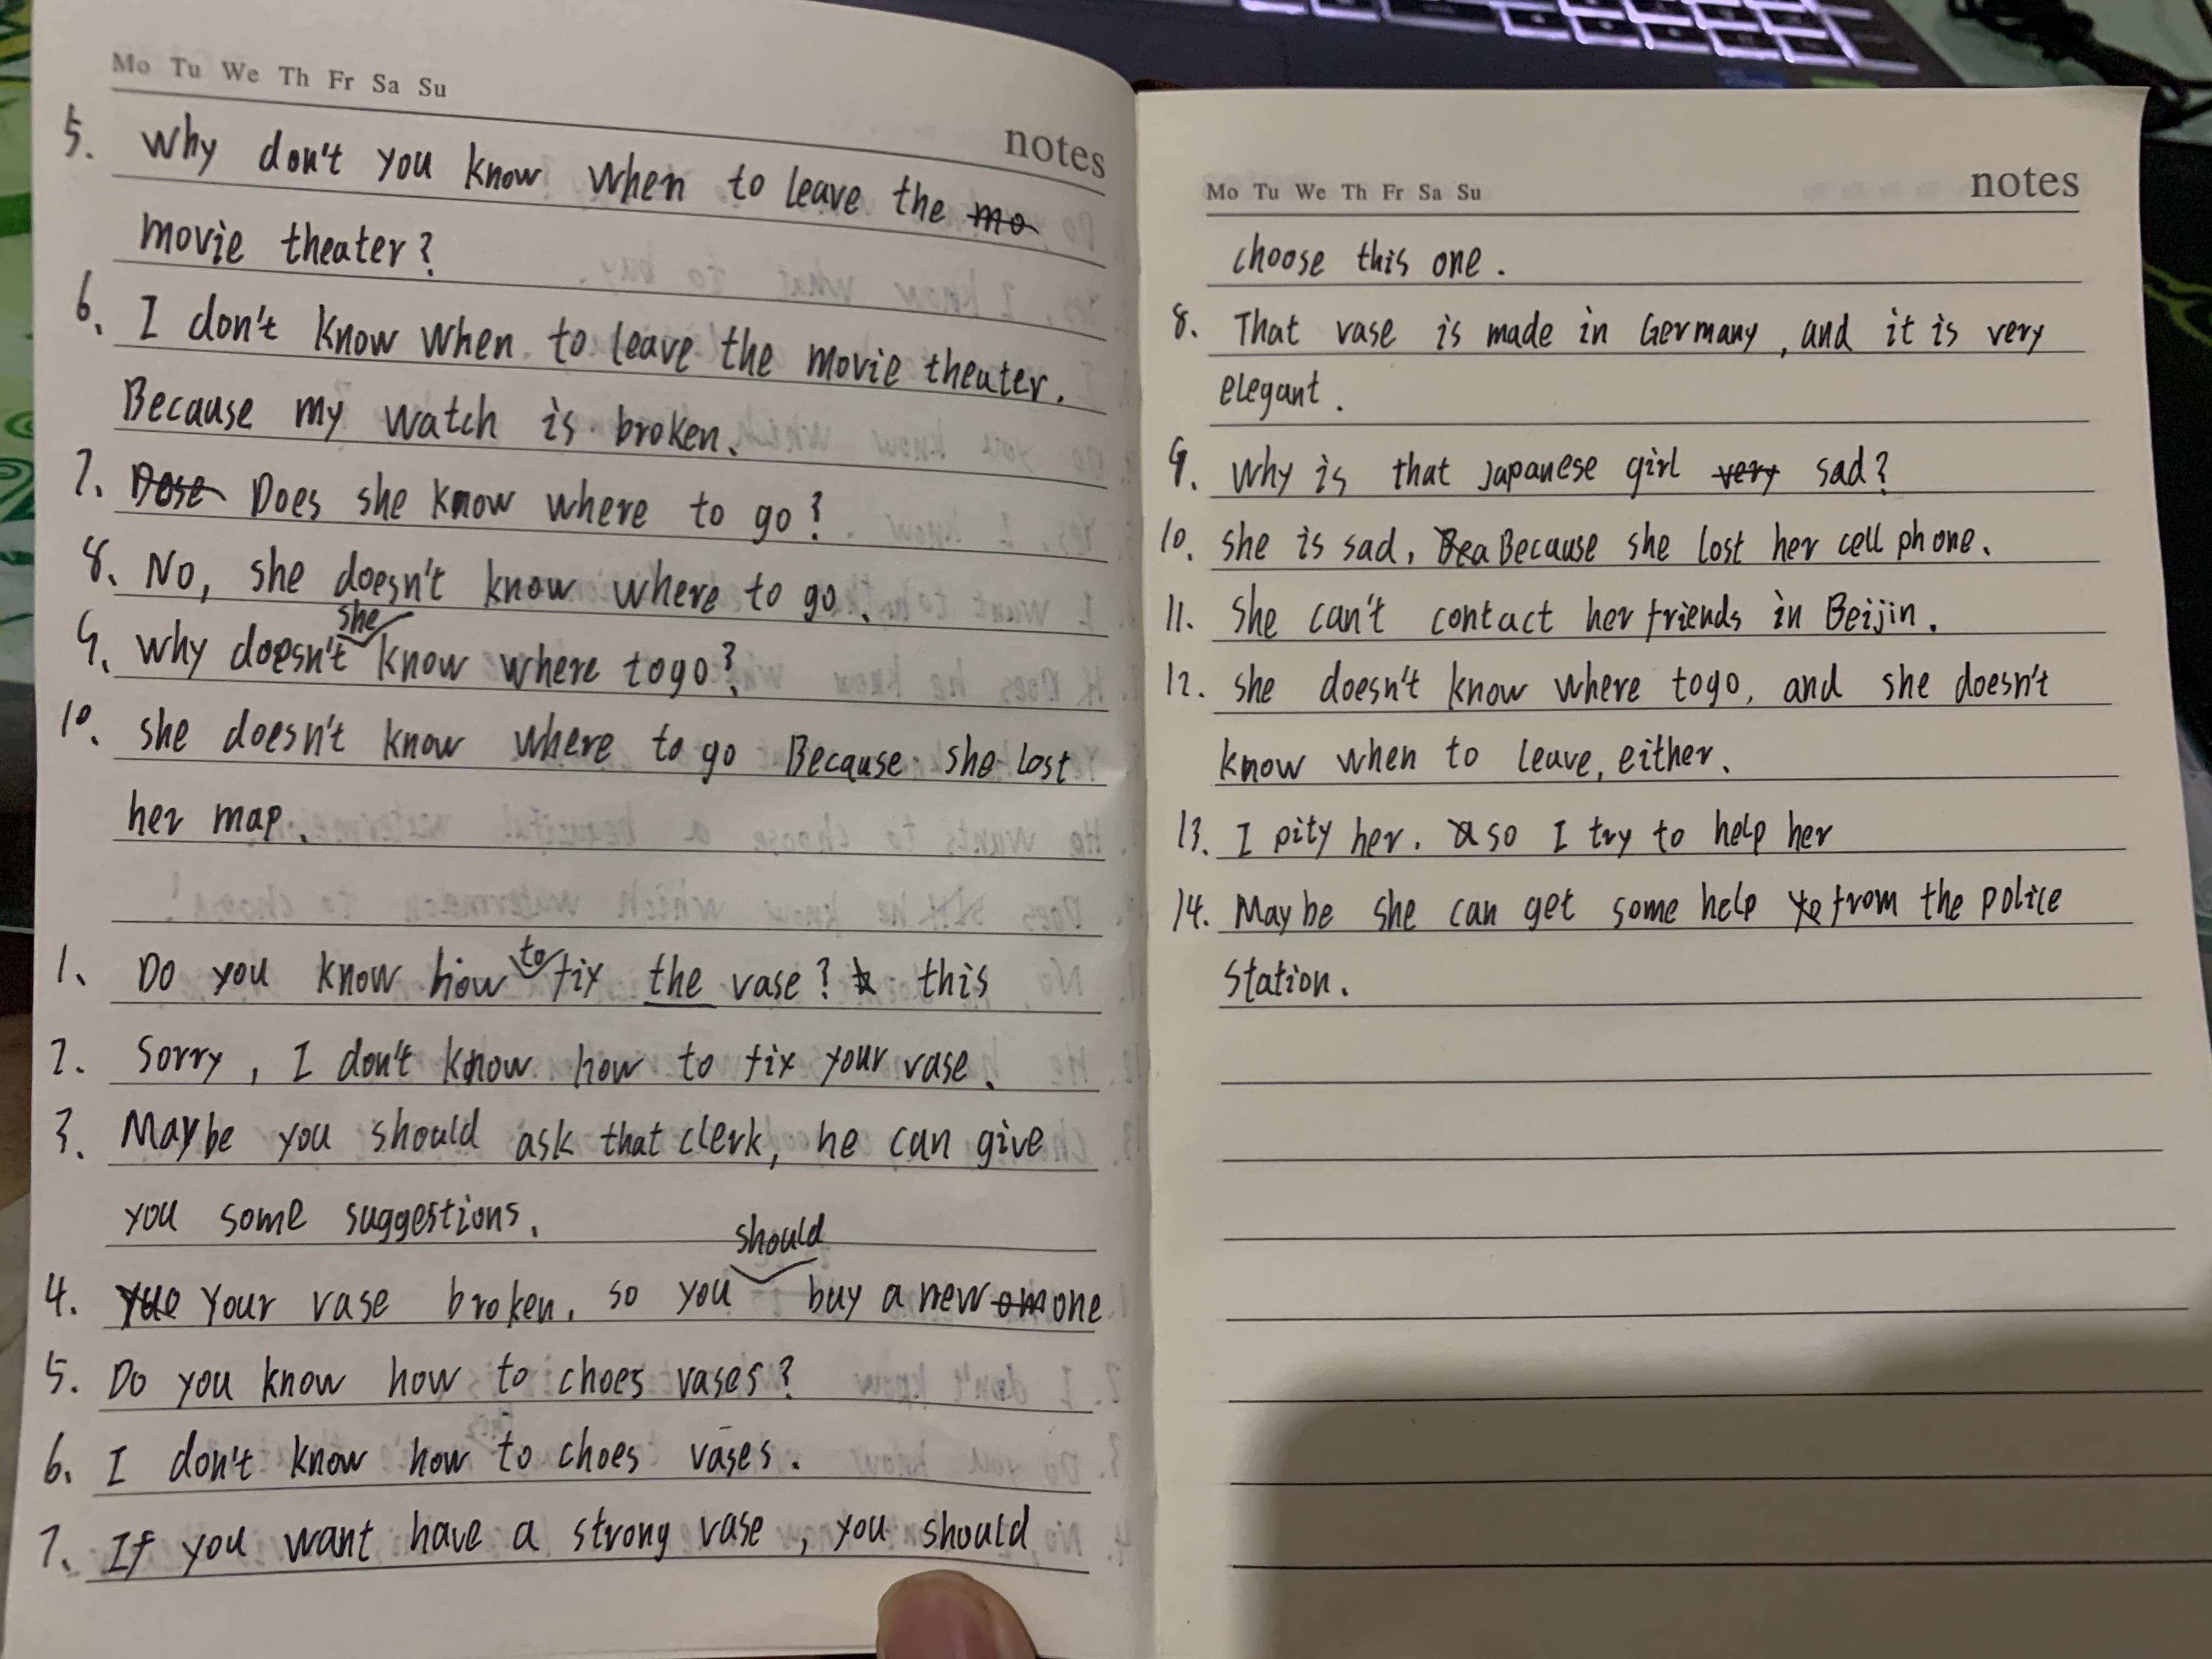 Mo Tu We Th Fr Sa Su
notes
5. Why don't you know when to leave the mo
movie theater?
6. I don't know when to leave the movie theater.
Because my watch is broken.
7. Dose Does she know where to go?
8. No, she doesn't know where to go.
she
9. why doesn't know where togo?
10. she doesn't know where to go Because she lost
her map.
to
1. Do you know how fix the vase? this
2. Sorry, I don't know how to fix your vase.
3. Maybe you should ask that clerk, he can give
you some suggestions.
should
4. Your vase broken, so you buy a new one
5. Do you know how to choes vases?
6. I don't know how to choes vases.
7. If you want have a strong vase, you should
Mo Tu We Th Fr Sa Su
notes
choose this one.
8. That vase is made in Germany, and it is very
elegant.
9. Why is that Japanese girl very sad?
10. she is sad, Bea Because she lost her cell phone.
11. She can't contact her friends in Beijin.
12. she doesn't know where togo, and she doesn't
know when to leave, either.
13. I pity her. so I try to help her
14. Maybe she can get some help from the police
station.